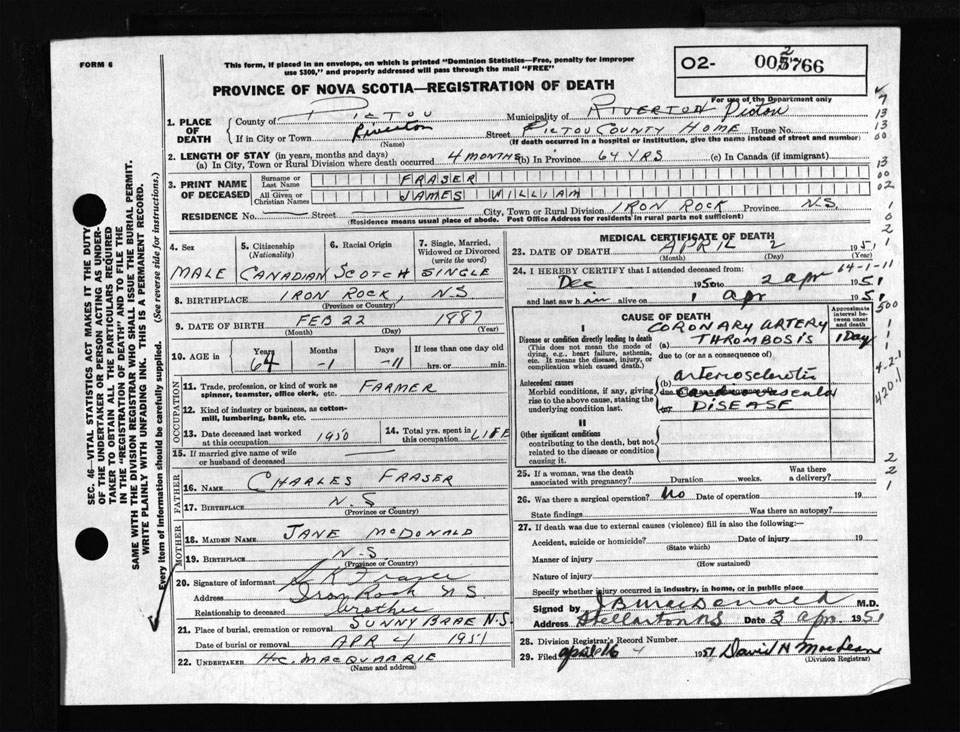 FORM 6
This form, if placed in an envelope, on which is printed "Dominion Statistics—Free, penalty for improper
use $300," and properly addressed will pass through the mail "FREE"
PROVINCE OF NOVA SCOTIA—REGISTRATION OF DEATH
02- 005766
2
For use of the Department only
1. PLACE OF DEATH
County of PICTOU Municipality of RIVERTON Pictou
If in City or Town Riverton Street PICTOU COUNTY HOME House No.
(Name) (If death occurred in a hospital or institution, give the name instead of street and number)
2. LENGTH OF STAY (in years, months and days)
(a) In City, Town or Rural Division where death occurred 4 MONTHS (b) In Province 64 YRS (c) In Canada (if immigrant)
3. PRINT NAME OF DECEASED
Surname or Last Name FRASER
All Given or Christian Names JAMES WILLIAM
RESIDENCE No. Street City, Town or Rural Division IRON ROCK Province N.S.
(Residence means usual place of abode. Post Office Address for residents in rural parts not sufficient)
4. Sex
MALE
5. Citizenship (Nationality)
CANADIAN
6. Racial Origin
SCOTCH
7. Single, Married, Widowed or Divorced (write the word)
SINGLE
8. BIRTHPLACE IRON ROCK, N.S
(Province or Country)
9. DATE OF BIRTH FEB 22 1887
(Month) (Day) (Year)
10. AGE in Years Months Days If less than one day old
64 -1 -11 hrs. or min.
OCCUPATION
11. Trade, profession, or kind of work as spinner, teamster, office clerk, etc. FARMER
12. Kind of industry or business, as cotton-mill, lumbering, bank, etc.
13. Date deceased last worked at this occupation 1950
14. Total yrs. spent in this occupation LIFE
15. If married give name of wife or husband of deceased
FATHER
16. NAME CHARLES FRASER
17. BIRTHPLACE N.S
(Province or Country)
MOTHER
18. MAIDEN NAME JANE McDONALD
19. BIRTHPLACE N.S.
(Province or Country)
20. Signature of informant K Fraser
Address Iron Rock N S.
Relationship to deceased brother
21. Place of burial, cremation or removal SUNNY BRAE N.S.
Date of burial or removal APR 4 1951
22. UNDERTAKER H.C. MACQUARRIE
(Name and address)
MEDICAL CERTIFICATE OF DEATH
23. DATE OF DEATH APRIL 2 1951
(Month) (Day)
24. I HEREBY CERTIFY that I attended deceased from:
Dec 1950 to 2 apr 1951
and last saw him alive on 1 apr 1951
64-1-11
CAUSE OF DEATH
Approximate interval between onset and death
I
Disease or condition directly leading to death
(This does not mean the mode of dying, e.g., heart failure, asthenia, etc. It means the disease, injury, or complication which caused death.)
(a) CORONARY ARTERY THROMBOSIS 1 Day
due to (or as a consequence of)
Antecedent causes
Morbid conditions, if any, giving rise to the above cause, stating the underlying condition last.
(b) arteriosclerotic
due cardiovascular
DISEASE
II
Other significant conditions
contributing to the death, but not related to the disease or condition causing it.
25. If a woman, was the death associated with pregnancy? Duration weeks. Was there a delivery?
26. Was there a surgical operation? No Date of operation 19
State findings Was there an autopsy?
27. If death was due to external causes (violence) fill in also the following:-
Accident, suicide or homicide? Date of injury 19
(State which)
Manner of injury
(How sustained)
Nature of injury
Specify whether injury occurred in industry, in home, or in public place
Signed by J B MacDonald M.D.
Address Stellarton NS Date 3 apr. 1951
28. Division Registrar's Record Number
29. Filed april 4 1951 David H MacLean
(Division Registrar)
SEC. 46—VITAL STATISTICS ACT MAKES IT THE DUTY
OF THE UNDERTAKER OR PERSON ACTING AS UNDER-
TAKER TO OBTAIN ALL THE PARTICULARS REQUIRED
IN THE "REGISTRATION OF DEATH" AND TO FILE THE
SAME WITH THE DIVISION REGISTRAR WHO SHALL ISSUE THE BURIAL PERMIT.
WRITE PLAINLY WITH UNFADING INK. THIS IS A PERMANENT RECORD.
Every item of information should be carefully supplied. (See reverse side for instructions.)
7
13
13
00
13
00
02
1
0
2
500
1
1
1
4-2-1
420.1
2
2
1